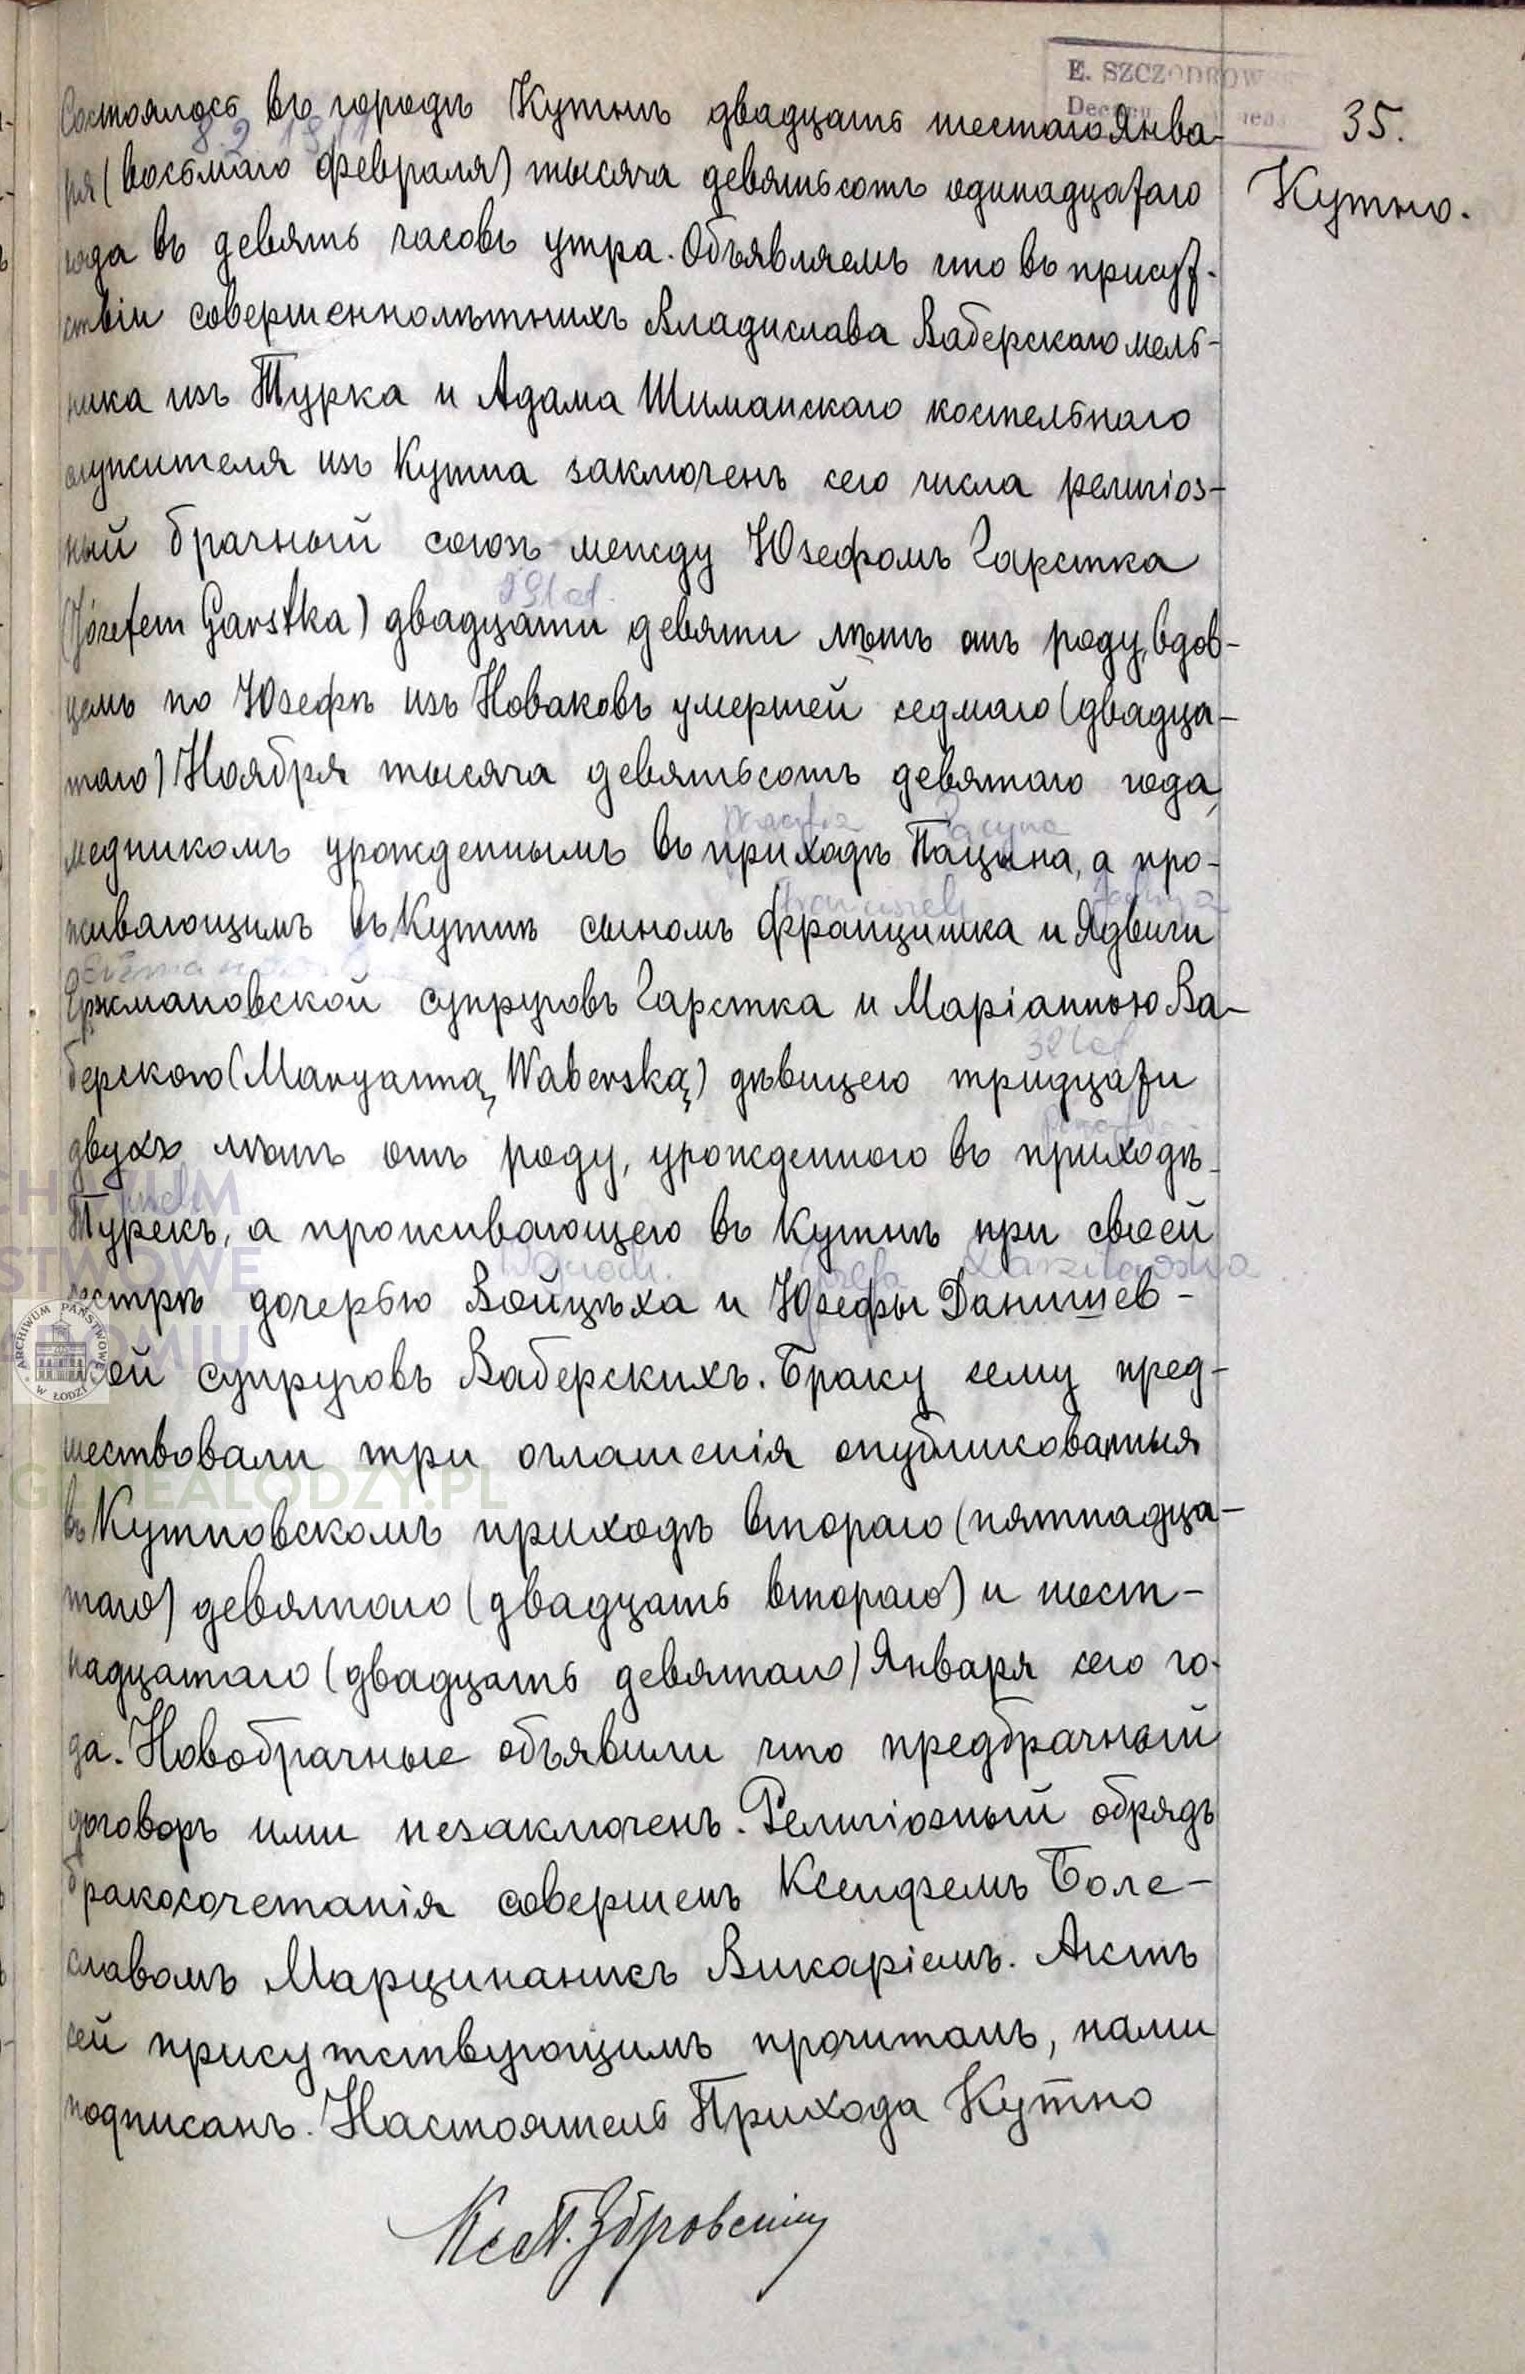 E. SZCZODROW
35.
Кутно.
Состоялось въ городѣ Кутнѣ двадцать шестаго Янва-
8.2.1911
ря (восьмаго февраля) тысяча девятьсотъ одинадцатаго
года въ девять часовъ утра. Объявляемъ что въ присут-
ствіи совершеннолѣтнихъ Владислава Ваберскаго мель-
ника изъ Турка и Адама Шиманскаго костельнаго
служителя изъ Кутна заключенъ сего числа религіоз-
ный брачный союзъ между Юзефомъ Гарстка
29 lat.
(Józefem Garstka) двадцати девяти лѣтъ отъ роду, вдов-
цемъ по Юзефѣ изъ Новаковъ умершей седмаго (двадца-
таго) Ноября тысяча девятьсотъ девятаго года,
parafia Pacyna
медникомъ урожденнымъ въ приходѣ Пацина, а про-
Franciszek Jadwiga
живающимъ въ Кутнѣ сыномъ Францишка и Ядвиги
Гржмановской супруговъ Гарстка и Маріанною Ва-
32 lat
берскою (Maryanną Waberską) дѣвицею тридцати
двухъ лѣтъ отъ роду, урожденною въ приходѣ
Турекъ, а проживающею въ Кутнѣ при своей
Wojciech Józefa
сестрѣ дочерью Войцѣха и Юзефы Данишев-
ской супруговъ Ваберскихъ. Браку сему пред-
шествовали три оглашенія опубликованныя
въ Кутновскомъ приходѣ втораго (пятнадца-
таго) девятаго (двадцать втораго) и шест-
надцатаго (двадцать девятаго) Января сего го-
да. Новобрачные объявили что предбрачный
договоръ ими незаключенъ. Религіозный обрядъ
бракосочетанія совершенъ Ксендземъ Боле-
славомъ Марцинаникъ Викаріемъ. Актъ
сей присутствующимъ прочитанъ, нами
подписанъ. Настоятель Прихода Кутно
ARCHIWUM PAŃSTWOWE W ŁODZI
GENEALODZY.PL